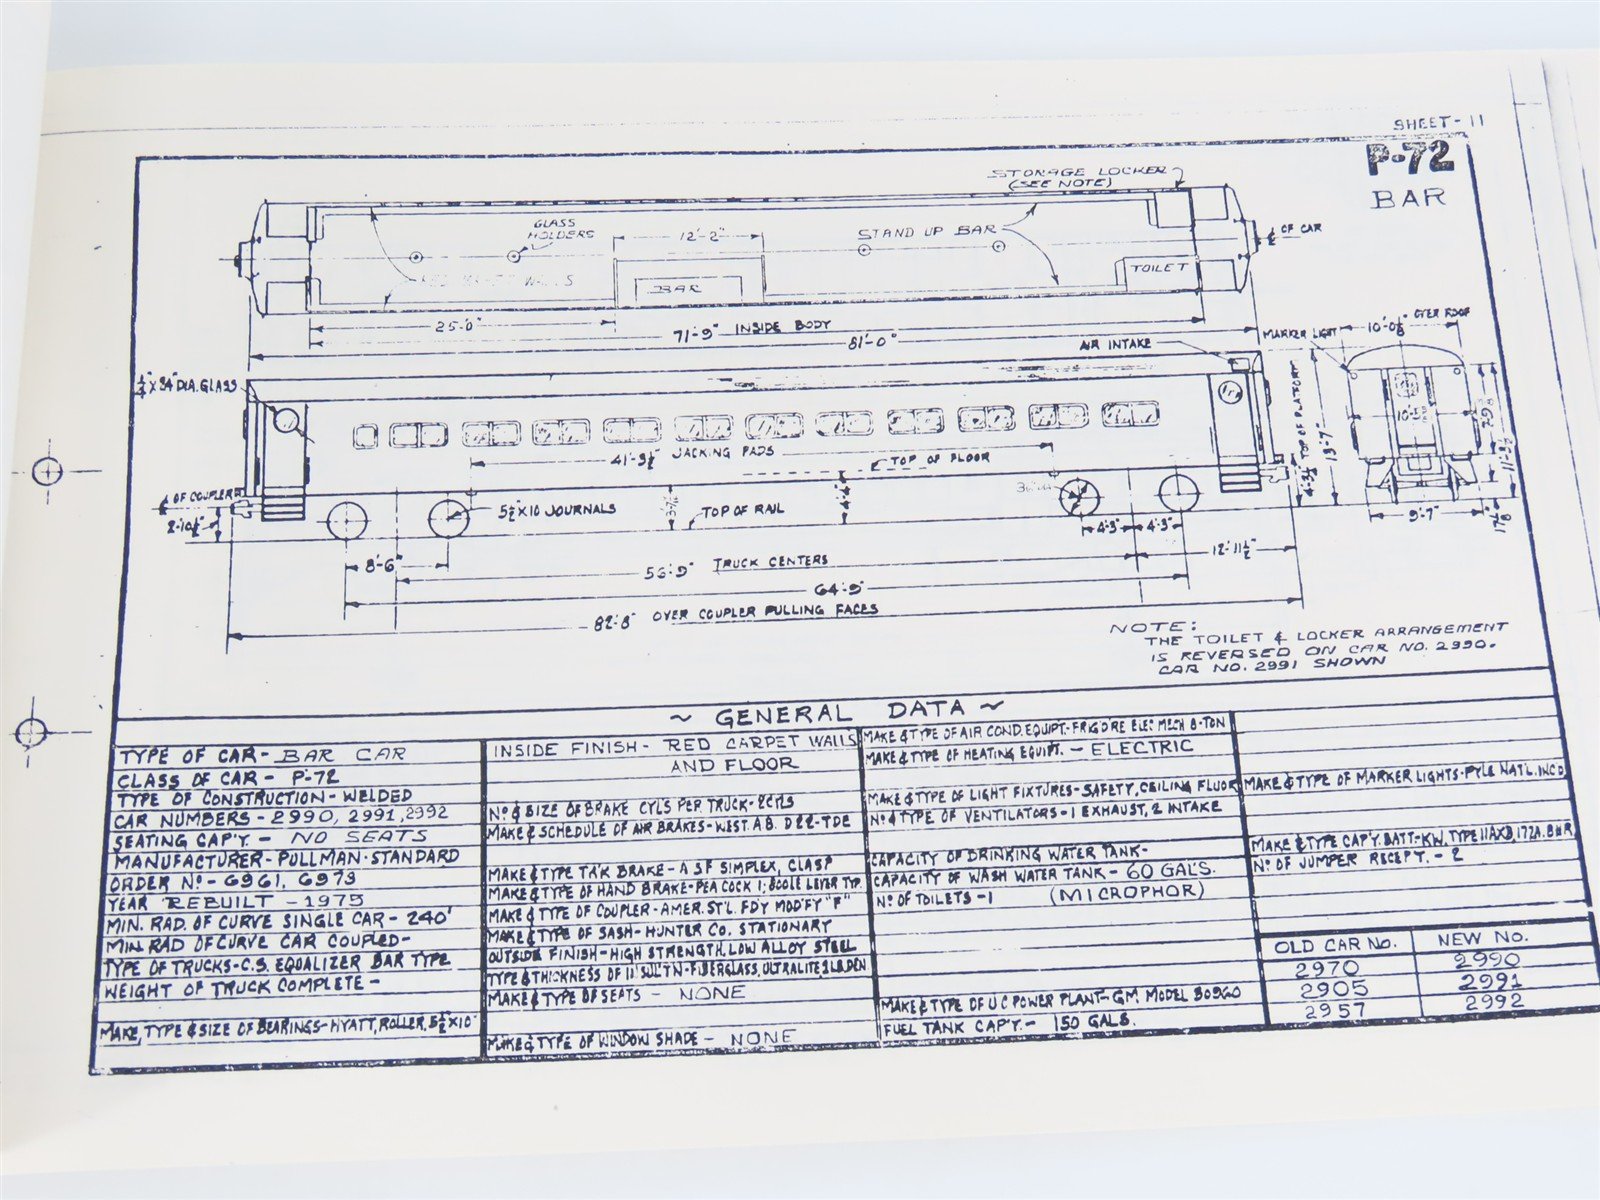 SHEET-11
P-72
BAR
STORAGE LOCKER
(SEE NOTE)
GLASS
HOLDERS
12'-2"
STAND UP BAR
℄ OF CAR
WALLS
BAR
TOILET
25'-0"
71'-9" INSIDE BODY
81'-0"
AIR INTAKE
MARKER LIGHT
OVER ROOF
DIA. GLASS
TOP OF PLATFORM
13'-7"
JACKING PADS
TOP OF FLOOR
℄ OF COUPLER
5½ X 10 JOURNALS
TOP OF RAIL
4'-3" 4'-3"
9'-7"
8'-6"
TRUCK CENTERS
12'-11½"
64'-9"
82'-8" OVER COUPLER PULLING FACES
NOTE:
THE TOILET & LOCKER ARRANGEMENT
IS REVERSED ON CAR NO. 2990.
CAR NO. 2991 SHOWN
~ GENERAL DATA ~
TYPE OF CAR - BAR CAR
CLASS OF CAR - P-72
TYPE OF CONSTRUCTION - WELDED
CAR NUMBERS - 2990, 2991, 2992
SEATING CAP'Y. - NO SEATS
MANUFACTURER - PULLMAN-STANDARD
ORDER Nº - 6961, 6973
YEAR REBUILT - 1975
MIN. RAD. OF CURVE SINGLE CAR - 240'
MIN RAD OF CURVE CAR COUPLED -
TYPE OF TRUCKS - C.S. EQUALIZER BAR TYPE
WEIGHT OF TRUCK COMPLETE -
MAKE, TYPE & SIZE OF BEARINGS - HYATT, ROLLER, 5½ X 10"
INSIDE FINISH - RED CARPET WALLS
AND FLOOR
Nº & SIZE OF BRAKE CYLS PER TRUCK - 2 CYLS
MAKE & SCHEDULE OF AIR BRAKES - WEST. A.B. D22-TDE
MAKE & TYPE T'R'K BRAKE - A S F SIMPLEX, CLASP
MAKE & TYPE OF HAND BRAKE - PEACOCK LEVER TYP.
MAKE & TYPE OF COUPLER - AMER. ST'L. F'D'Y MOD'F'Y "F"
MAKE & TYPE OF SASH - HUNTER CO. STATIONARY
OUTSIDE FINISH - HIGH STRENGTH, LOW ALLOY STEEL
TYPE & THICKNESS OF INSUL'T'N - FIBERGLASS, ULTRALITE
MAKE & TYPE OF SEATS - NONE
MAKE & TYPE OF WINDOW SHADE - NONE
MAKE & TYPE OF AIR COND. EQUIPT. - FRIGDRE ELEC MECH 8-TON
MAKE & TYPE OF HEATING EQUIPT. - ELECTRIC
MAKE & TYPE OF LIGHT FIXTURES - SAFETY, CEILING FLUOR
Nº & TYPE OF VENTILATORS - 1 EXHAUST, 2 INTAKE
CAPACITY OF DRINKING WATER TANK -
CAPACITY OF WASH WATER TANK - 60 GAL'S.
Nº OF TOILETS - 1 (MICROPHOR)
MAKE & TYPE OF U C POWER PLANT - GM MODEL
FUEL TANK CAP'Y. - 150 GALS.
MAKE & TYPE OF MARKER LIGHTS - PYLE NAT'L. INCD
MAKE & TYPE CAP'Y. BATT. - KW, TYPE
Nº OF JUMPER RECEPT. - 2
OLD CAR NO. NEW NO.
2970 2990
2905 2991
2957 2992